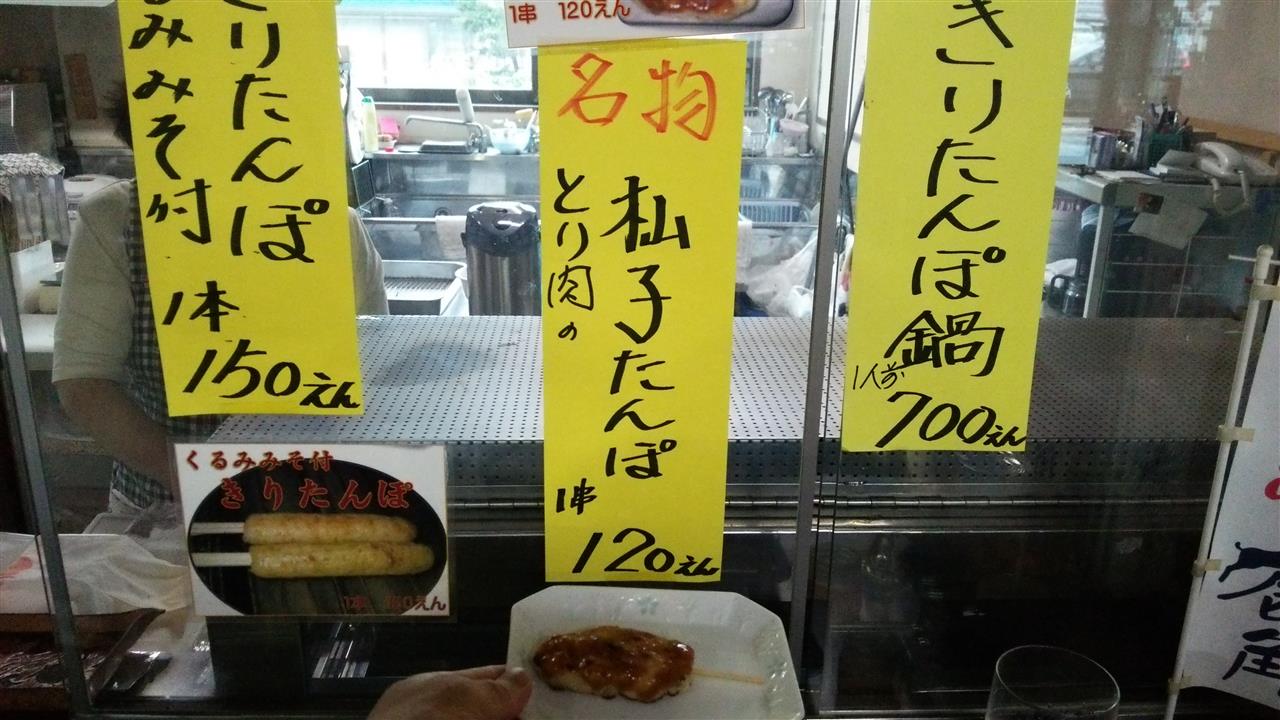 1串 120えん
きりたんぽ
るみみそ付
1本
150えん
くるみみそ付
きりたんぽ
1串
名物
杣子たんぽ
とり肉の
1串
120えん
きりたんぽ鍋
1人前
700えん